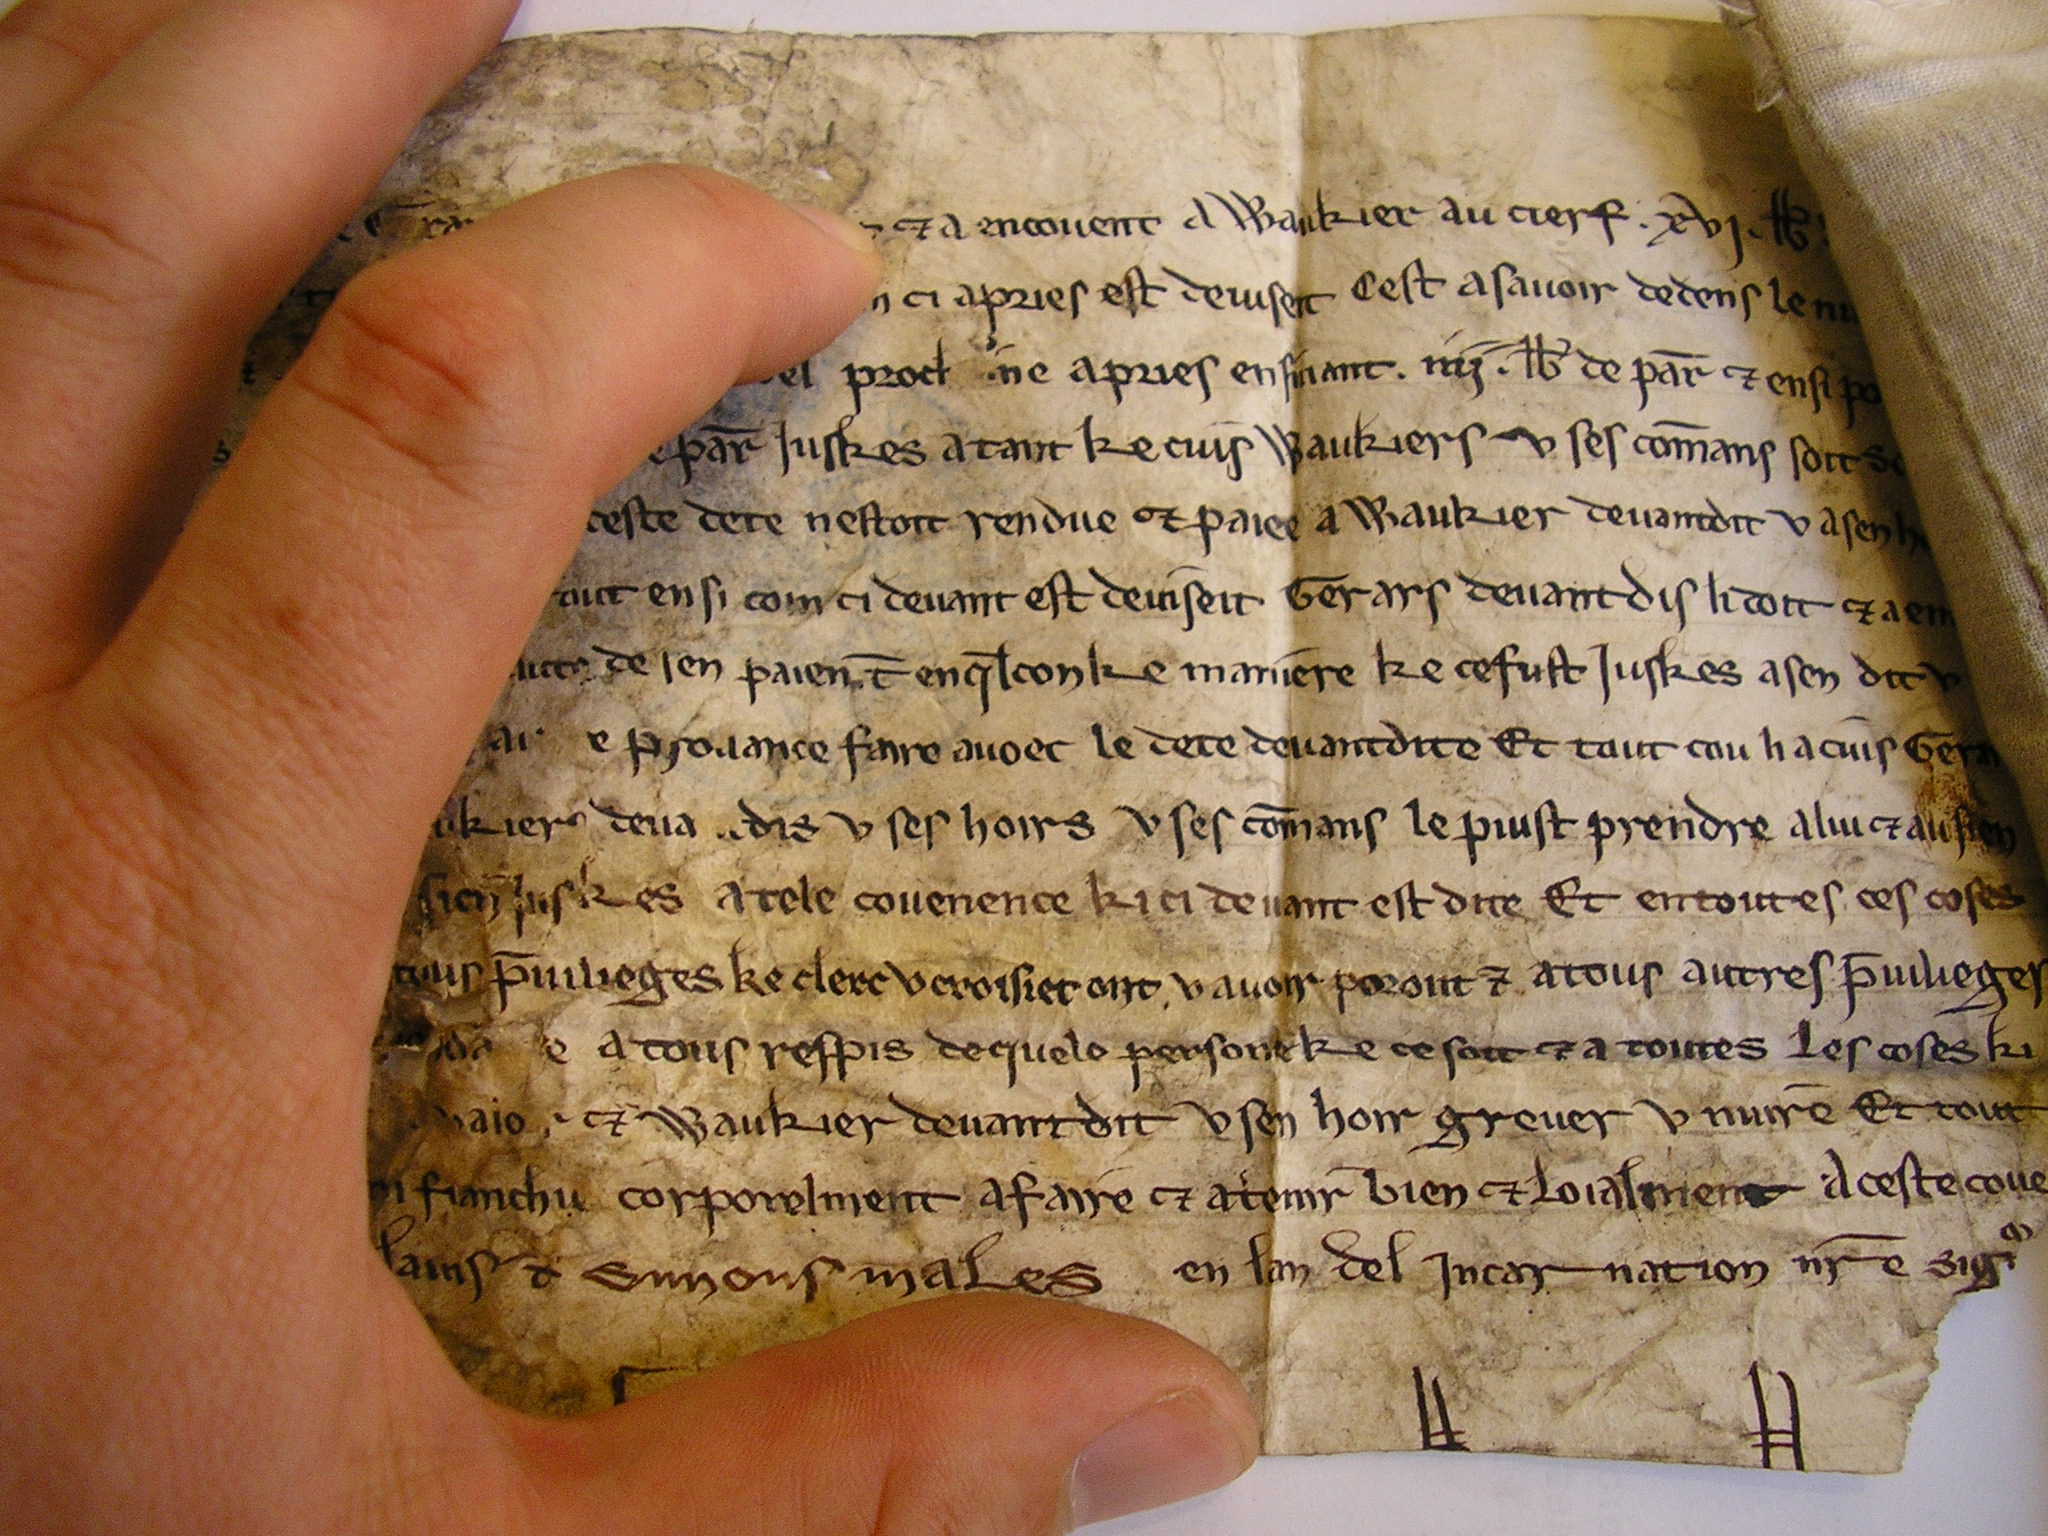 ⁊ a encouent a Waukier au cierf . xvi . lb
ci apries est deuiseit Cest a sauoir dedens le
del proc ine apries ensiuant . iiij . lb de par̄ ⁊ ensi
par̄ Juskes a tant ke cuis Waukiers v ses com̄ans soit
ceste dete nestoit rendue ⁊ paiee a Waukier deuantdit v a sen
tout ensi com ci deuant est deuiseit Gerars deuantdis li doit ⁊ a en
de sen paiem̄t en ql̄conke maniere ke ce fust Juskes a sen dit v
e prouance faire auoec le dete deuantdite Et tout cou li a cuis Gera
ukiers deua dis v ses hoirs v ses com̄ans le puist prendre a lui ⁊ au sien
sien Juskes a tele couenence ki ci deuant est dite Et en toutes ces coses
tous p̄uilieges ke clerc v croisiet ont v auoir poront ⁊ a tous autres p̄uilieges
e a tous respis de quele persone ke ce soit ⁊ a toutes les coses ki
⁊ Waukier deuantdit v sen hoir greuer v nuire Et tout
fianchu corporelment a faire ⁊ a tenir bien ⁊ loialment A ceste coue
⁊ Simons males en lan del Incarnation nr̄e sigr